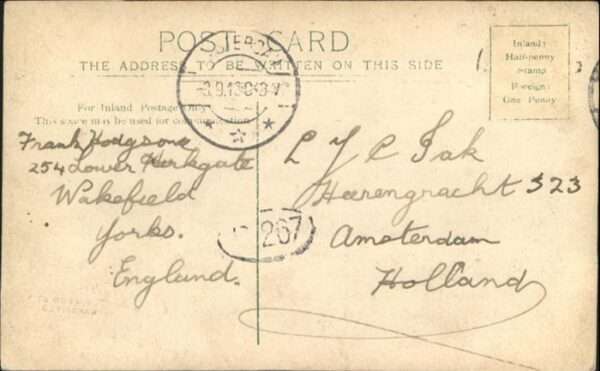 POST CARD
THE ADDRESS TO BE WRITTEN ON THIS SIDE
Inland:
Half-penny
stamp
Foreign:
One Penny
For Inland Postage Only
This space may be used for communication
Frank Hodgson
254 Lower Kirkgate
Wakefield
Yorks.
England.
L Y C Jak
Heerengracht 323
Amsterdam
Holland
267